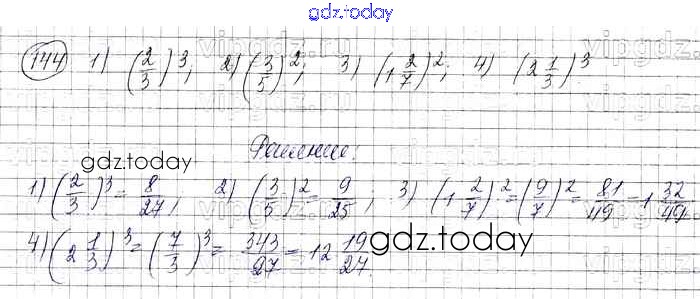 gdz.today
vipgdz.ru
144 1) (2/3)^3; 2) (3/5)^2; 3) (1 2/7)^2; 4) (2 1/3)^3
Решение:
gdz.today
1) (2/3)^3 = 8/27, 2) (3/5)^2 = 9/25, 3) (1 2/7)^2 = (9/7)^2 = 81/49 = 1 32/49
4) (2 1/3)^3 = (7/3)^3 = 343/27 = 12 19/27.
gdz.today